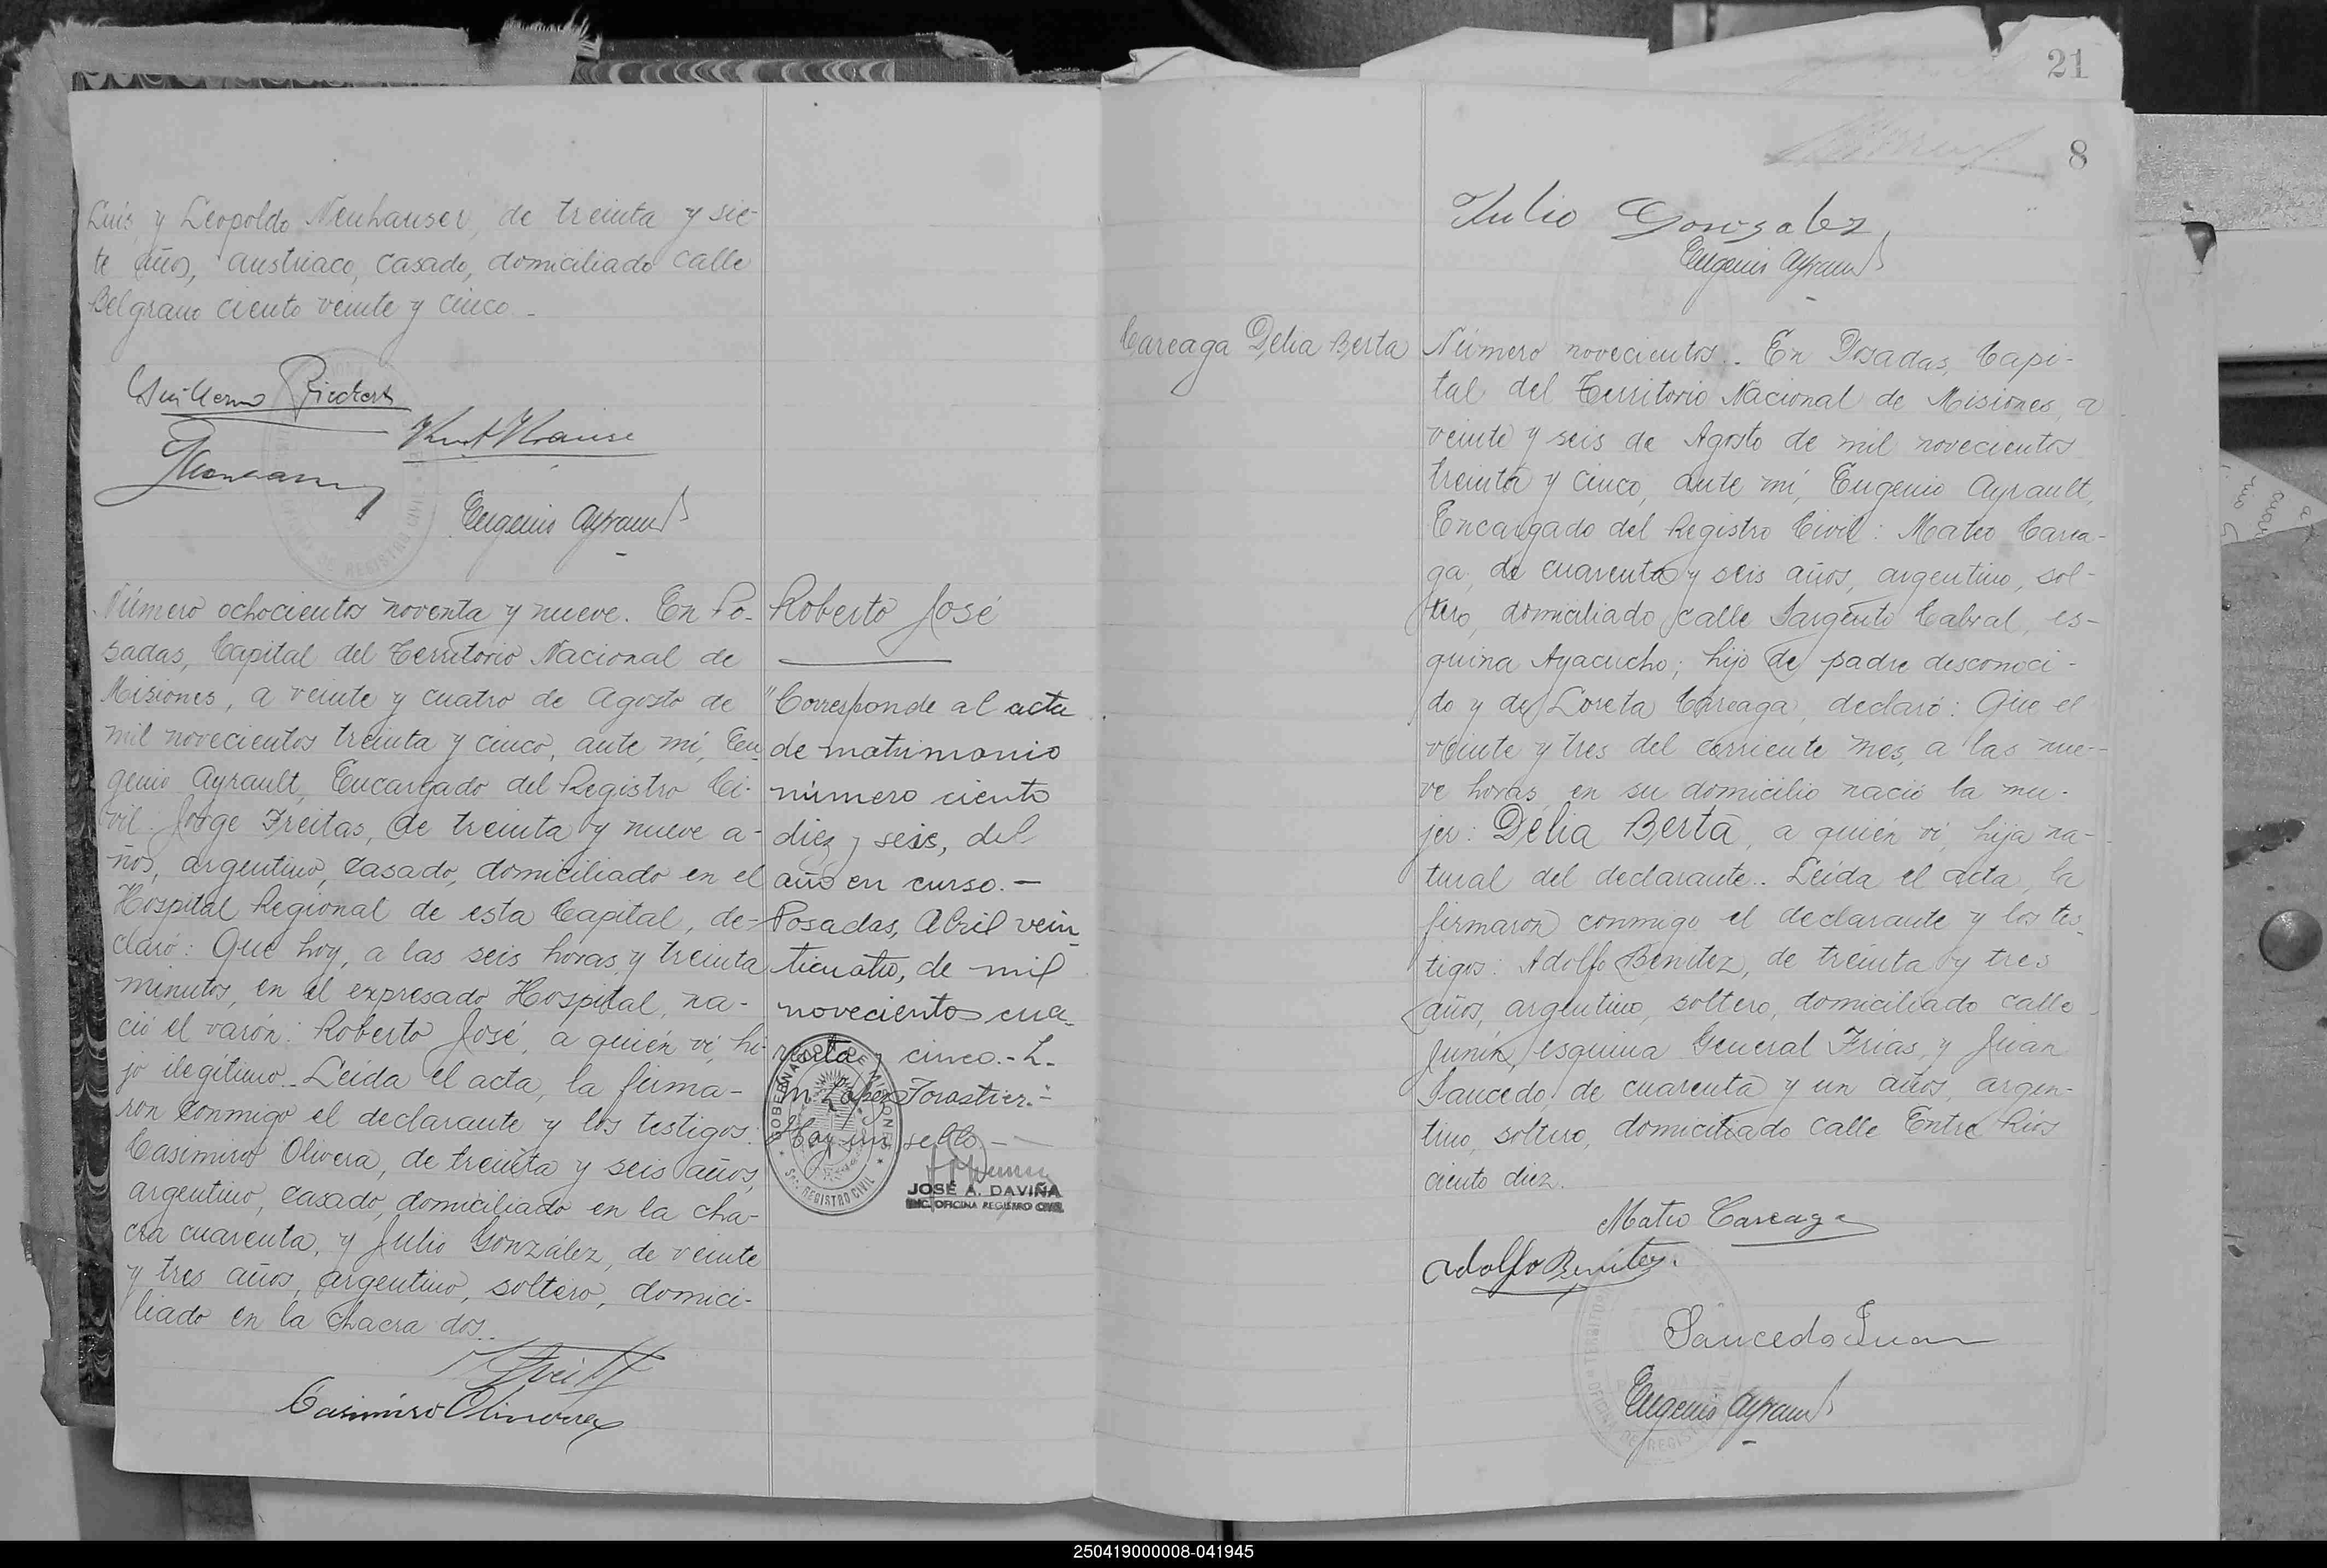 Luis, y Leopoldo Neuhauser, de treinta y sie-
te años, austriaco, casado, domiciliado calle
Belgrano ciento veinte y cinco.-
Guillermo
Kurt Krause
Eugenio Ayrault
Número ochocientos noventa y nueve. En Po-
sadas, Capital del Territorio Nacional de
Misiones, a veinte y cuatro de Agosto de
mil novecientos treinta y cinco, ante mí, Eu-
genio Ayrault, Encargado del Registro Ci-
vil: Jorge Freitas, de treinta y nueve a-
ños, argentino, casado, domiciliado en el
Hospital Regional de esta Capital, de-
claró: Que hoy, a las seis horas y treinta
minutos, en el expresado Hospital, na-
ció el varón: Roberto José, a quién ví, hi-
jo ilegítimo.- Leída el acta, la firma-
ron conmigo el declarante y los testigos:
Casimiro Olivera, de treinta y seis años,
argentino, casado, domiciliado en la cha-
cra cuarenta, y Julio González, de veinte
y tres años, argentino, soltero, domici-
liado en la chacra dos.-
Casimiro Olivera
Roberto José
"Corresponde al acta
de matrimonio
número ciento
diez y seis, del
año en curso.-
Posadas, Abril vein
ticuatro, de mil
novecientos cua-
renta y cinco.- L.
M. López Forastier.-
Hay un sello.-
GOBERNACION DE MISIONES
REGISTRO CIVIL
JOSÉ A. DAVIÑA
ENC. OFICINA REGISTRO CIVIL
21
8
Julio Gonzalez
Eugenio Ayrault
Careaga Delia Berta
Número novecientos.. En Posadas, Capi-
tal del Territorio Nacional de Misiones, a
veinte y seis de Agosto de mil novecientos
treinta y cinco, ante mí, Eugenio Ayrault,
Encargado del Registro Civil: Mateo Carea-
ga, de cuarenta y seis años, argentino, sol-
tero, domiciliado calle Sargento Cabral, es-
quina Ayacucho; hijo de padre desconoci-
do y de Loreta Careaga, declaró: Que el
veinte y tres del corriente mes, a las nue-
ve horas, en su domicilio nació la mu-
jer: Delia Berta, a quién ví, hija na-
tural del declarante.. Leída el acta, la
firmaron conmigo el declarante y los tes-
tigos: Adolfo Benítez, de treinta y tres
años, argentino, soltero, domiciliado calle
Junín, esquina General Frías, y Juan
Saucedo, de cuarenta y un años, argen-
tino, soltero, domiciliado calle Entre Ríos
ciento diez.
Mateo Careaga
Adolfo Benitez.
Saucedo Juan
Eugenio Ayrault
250419000008-041945